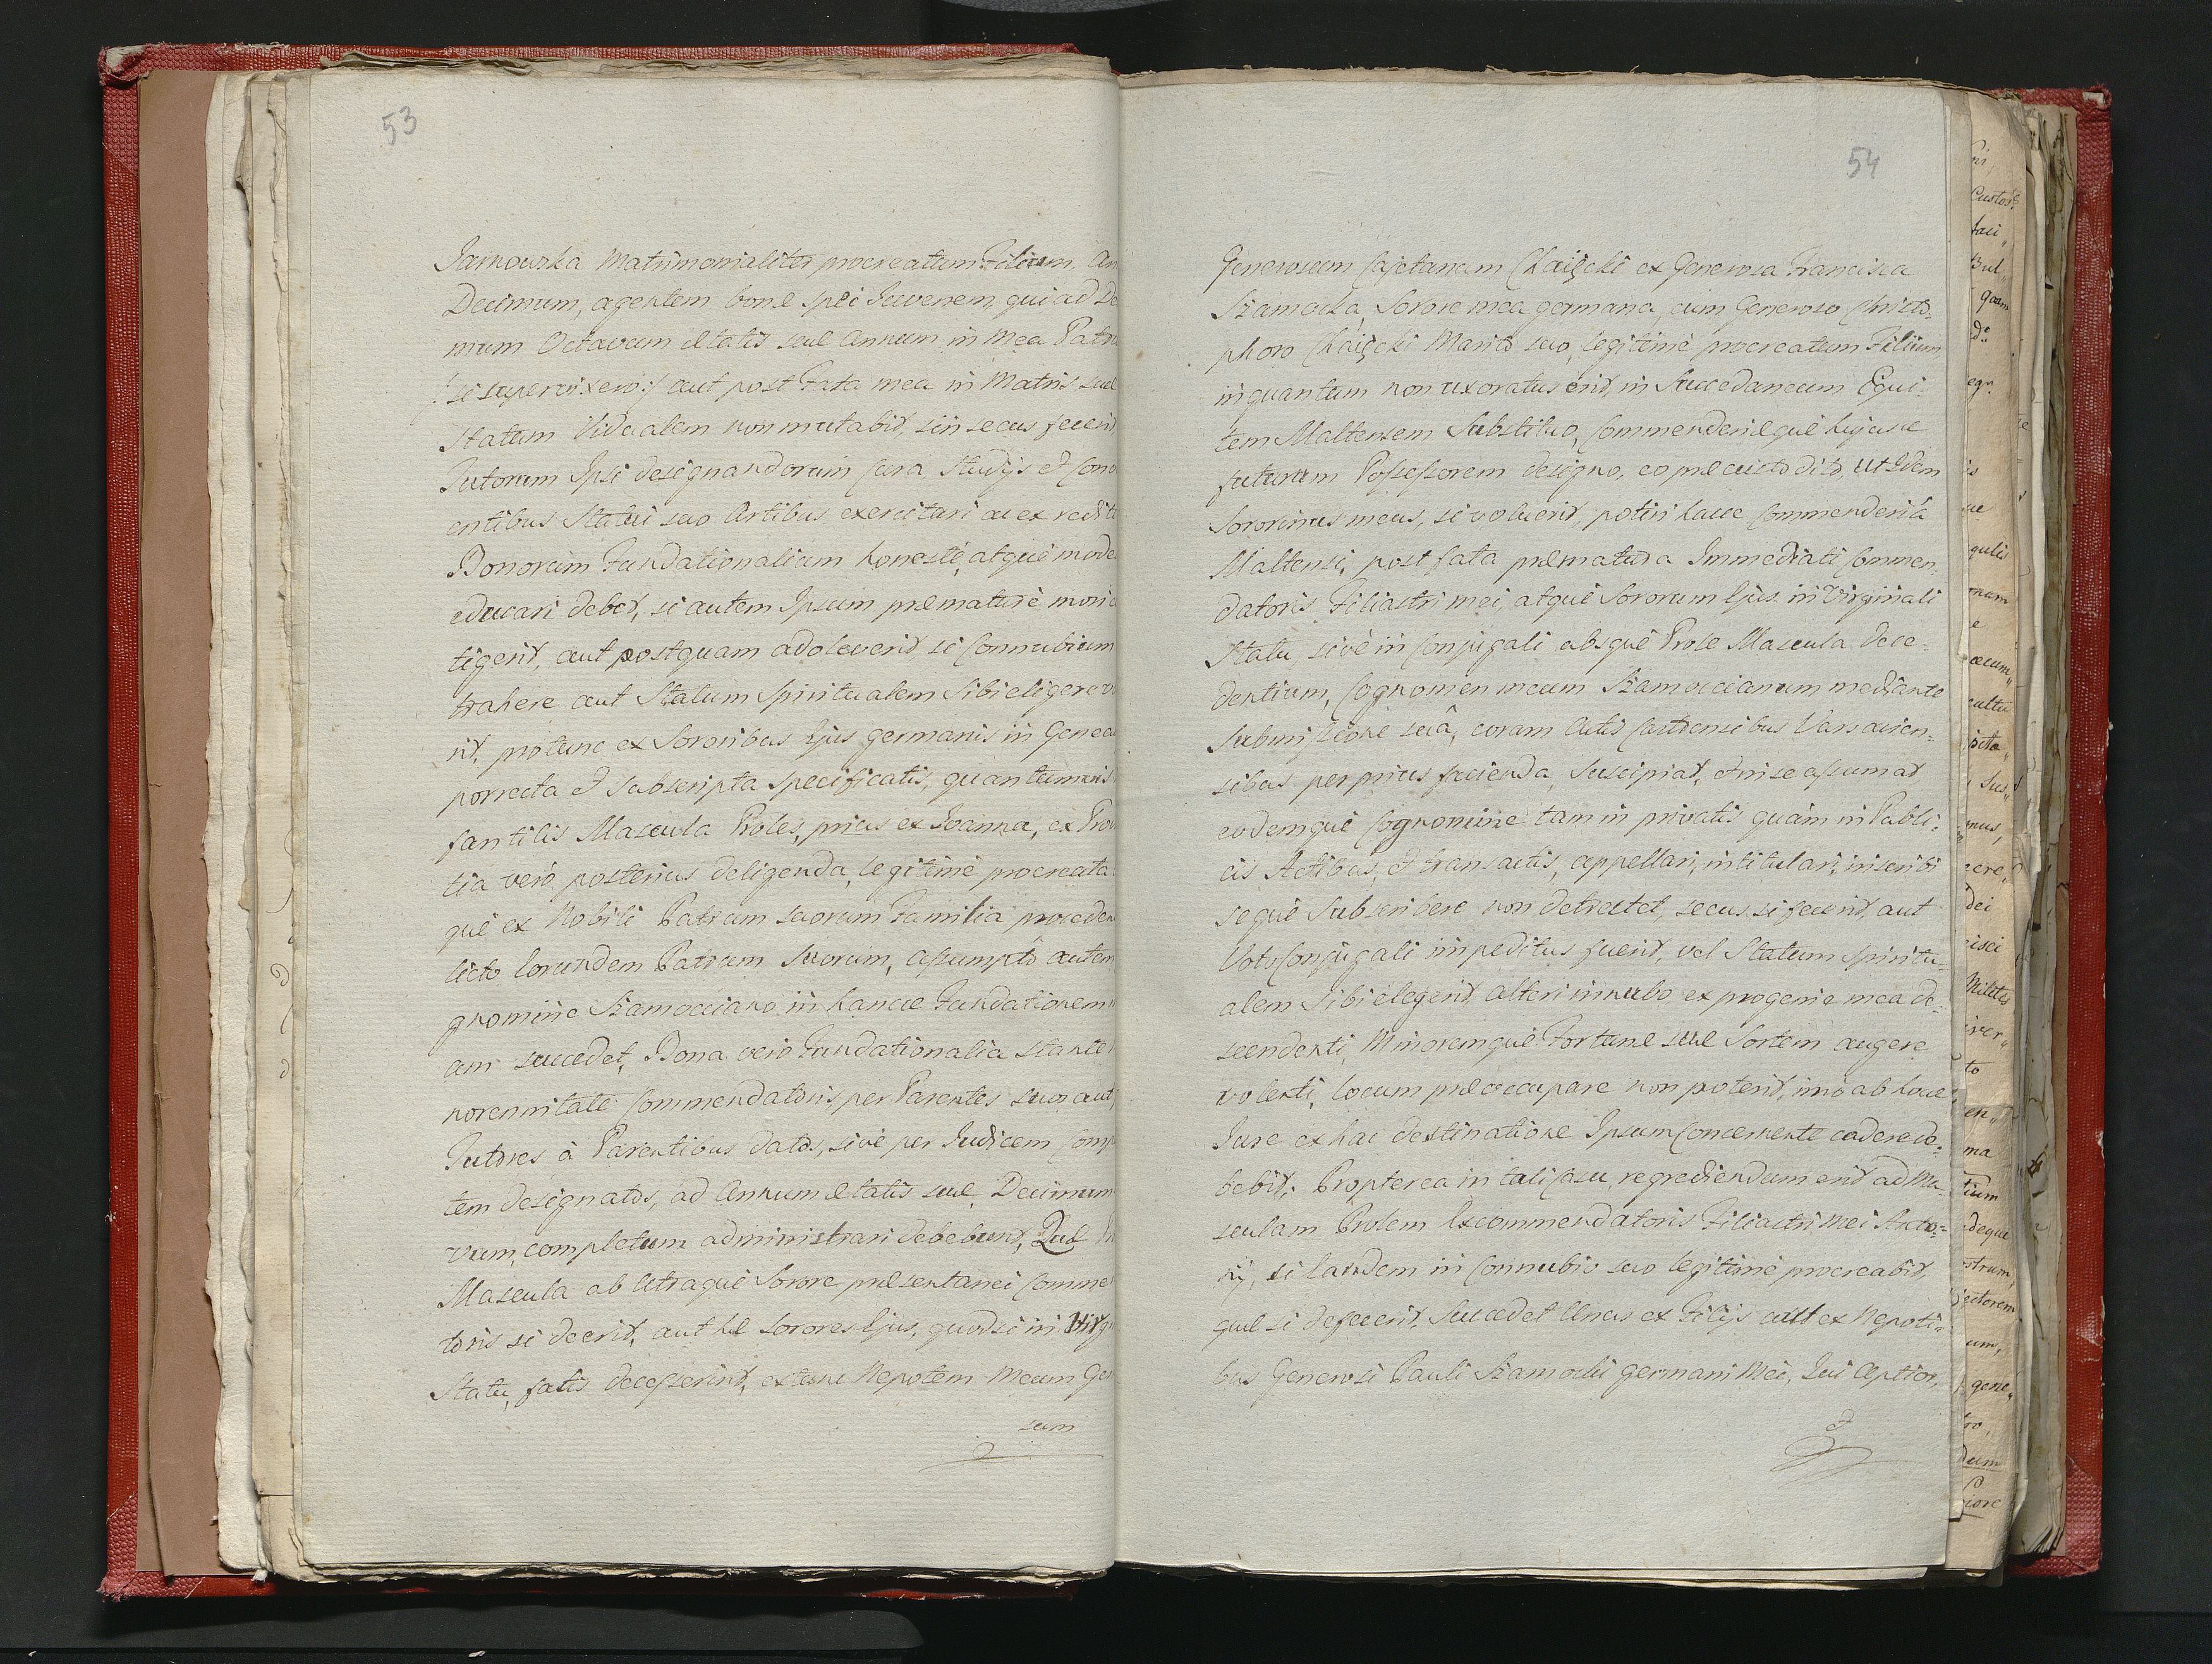 53
Jarnowska Matrimonialiter procreatum Filium, An
Decimum, agentem bonæ Spei Juvenem, qui ad De
mum Octavum Ætatis suæ Annum in mea Patri
/: si supervixero :/ aut post Fata mea in Matris suæ
Statum Vidualem non mutabit, sin secus fecerit,
Tutorum Ipsi designandorum Cura Studijs et Conv
entibus Statui suo Artibus exercitari ac ex redit
Bonorum Fundationalium honestè, atquè mode
educari debet, si autem Ipsum præmaturè mori c
tigerit, aut postquam adoleverit si Connubium
trahere aut Statum Spiritualem Sibi eligere v
rit, protunc ex Sororibus Ejus germanis in Genea
porrecta et Subscripta Specificatis, quantumvis
fantilis Mascula Proles, prius ex Joanna, ex Pro
tia verò posterius deligenda, legitimè procreata
què ex Nobili Patrum suorum Familia proceden
licto Eorundem Patrum Suorum, assumptò autem
gnomine Szamocciano in hancce Fundationem
am succedet, Bona verò Fundationalia stante
norennitate Commendatoris, per Parentes suos aut
Tutores à Parentibus datos, sivè per Judicem Comp
tem designatos, ad Annum Ætatis suæ Decimum
vum, completum administrari debebunt, Quæ
Mascula ab Utraquè Sorore præsentanei Comme
toris si deerit, aut hæ Sorores Ejus, quodsi in Virg
Statu, fatis decesserint, extunc Nepotem Meum Gen
sum
54
Generosum Cajetanum Chaięcki ex Generosa Francisca
Szamocka, Sorore mea germana, cum Generoso Christo=
phoro Chaięcki Marito suo, legitimè procreatum Filium,
inquantum non uxoratus erit, in Succedaneum Equi=
tem Maltensem Substituo, Commenderiæquè hujusce
futurum Possessorem designo, eo præcustodito, ut Idem
Sororinus meus, si voluerit, potiri hacce Commenderiâ
Maltensi, post fata præmatura Immediati Commen=
datoris Filiastri mei, atquè Sororum Ejus in Virginali
Statu, sivè in Conjugali absquè Prole Mascula dece=
dentium, Cognomen meum Szamoccianum mediante
Submissione suâ, coram Actis Castrensibus Varsavien=
sibus per prius facienda, Suscipiat, et in se assumat
eodemquè Cognomine tam in privatis quàm in Publi=
cis Actibus, et transactis, appellari, intitulari, inscribi
sequè Subscribere non detrectet, secus si fecerit, aut
Voto Conjugali impeditus fuerit, vel Statum Spiritu=
alem Sibi elegerit alteri innubo ex progenie mea de=
scendenti, Minoremquè Fortunæ suæ Sortem augere
volenti, locum præoccupare non poterit, imò ab hocce
Jure ex hac destinatione Ipsum Concernente cadere de=
bebit. Propterea in tali Casu, regrediendum erit ad Ma=
sculam Prolem Excommendatoris Filiastri Mei Anto=
nij, si Eandem in Connubio suo legitimè procreabit,
quæ si defecerit, Succedet Unus ex Filijs aut ex Nepoti=
bus Generosi Pauli Szamocki germani Mei, qui aptior,
et